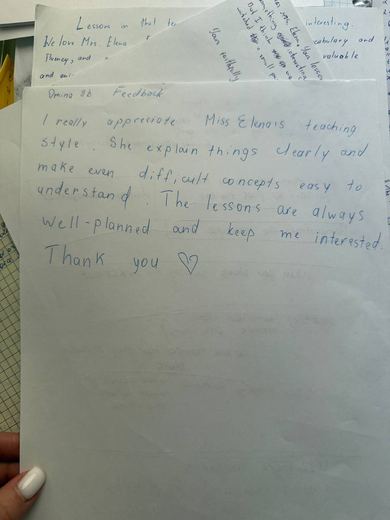 Lesson in that
interesting.
We love Mrs. Elena
cabulary and
valuable
and
You faithfully
Omina 8b Feedback
I really appreciate Miss Elena's teaching
style. She explain things clearly and
make even difficult concepts easy to
understand. The lessons are always
well-planned and keep me interested.
Thank you ♡